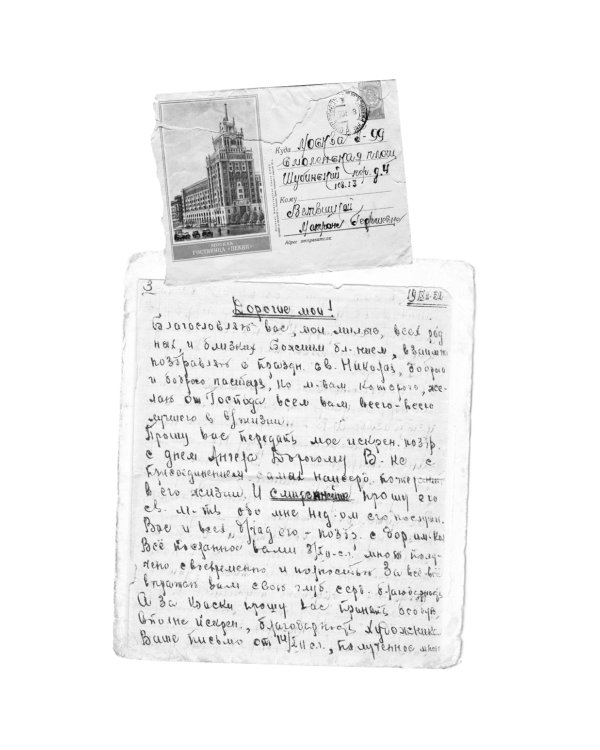 Куда Москва Г-99
Смоленская площ
Шубинский пер. д. 4
кв. 13
Кому
Ветвицкой
Матроне Георгиевне
Адрес отправителя:
МОСКВА
ГОСТИНИЦА «ПЕКИН»
3
Дорогие мои!
Благословляю вас, мои милые, всех род
ных, и близких Божиим бл-нием, взаимно
поздравляю с праздн. св. Николая, доброго
и доброго пастыря, по м-вам которого, же-
лаю от Господа всем вам всего-всего
лучшего в жизни.
Прошу вас передать мое искрен. поздр.
с днем Ангела Дорогому В.
присоединением самых пожеланий
в его жизни. И смиреннейше прошу его
св. м-тв обо мне нед-ом его послушн.
Вас и всех
Всё посланное вами мною полу-
чено своевременно и полностью. За всё-всё
выражаю вам свою глуб. серд. благодарность
А за краски прошу вас принять особую,
вполне искрен., благодарность художника.
Ваше письмо от 14/ II с.г., полученное мною